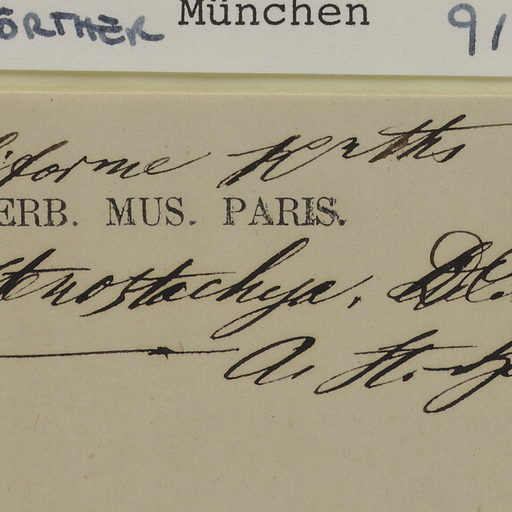 ÖRTHER München 91
iforme Knths
ERB. MUS. PARIS.
stenostachya. DC.
A. St.